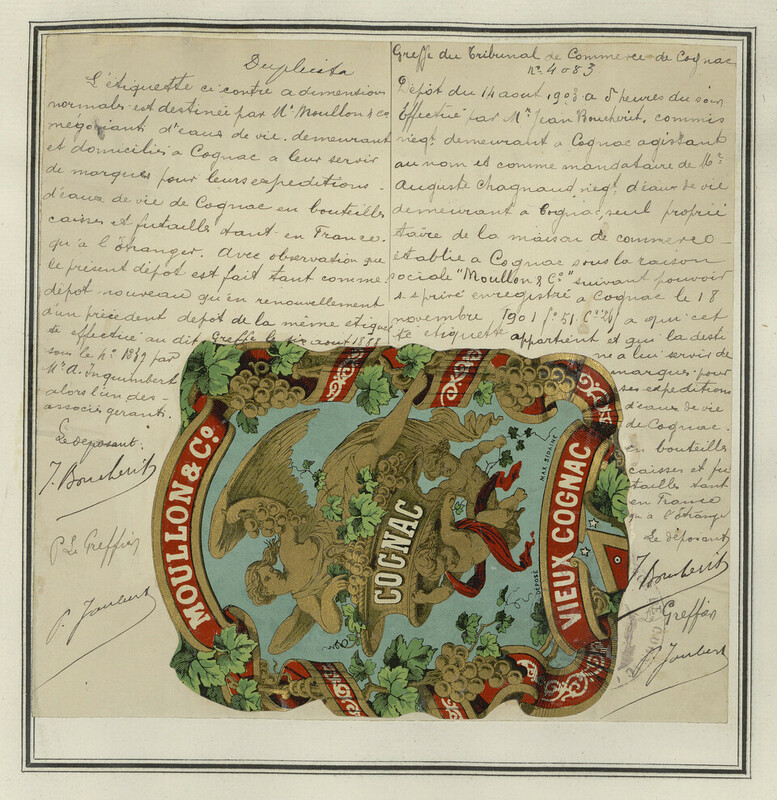 Duplicata
L'étiquette ci contre a dimensions
normales est destinée par Mrs Moullon & Co
négociants d'eaux de vie demeurant
et domiciliés a Cognac a leur servir
de marques pour leurs expeditions
d'eaux de vie de Cognac en bouteilles
caisses et futailles tant en France
qu'a l'étranger. Avec observation que
le présent dépot est fait tant comme
dépot nouveau qu'en renouvellement
d'un précédent depot de la même étiquet
te effectué au dit Greffe le aout 1888
sous le No 1839 par
Mr A. Inquimbert
alors l'un des
associés gerants.
Le déposant.
J. Boucherit
P. Le Greffier
P. Joubert
Greffe du Tribunal de Commerce de Cognac
No 4083
Dépôt du 14 aout 1903 a 5 heures du soir
Effectué par Mr Jean Boucherit, commis
négt demeurant a Cognac agissant
au nom et comme mandataire de Mr
Auguste Chagnaud negt d'eaux de vie
demeurant a Cognac, seul proprié
taire de la maison de commerce
établie a Cognac sous la raison
sociale "Moullon & Co" suivant pouvoir
s s privé enregistré a Cognac le 18
novembre 1901 fo 51 Co 26 a qui cet
te etiquette appartient et qui la desti
ne a lui servir de
marques pour
ses expeditions
d'eaux de vie
de Cognac.
en bouteilles
caisses et fu
tailles tant
en France
qu'a l'étranger
Le déposant
J. Boucherit
Greffier
P. Joubert
MOULLON & Co.
COGNAC
VIEUX COGNAC
MAX SIDAINE
DÉPOSÉ